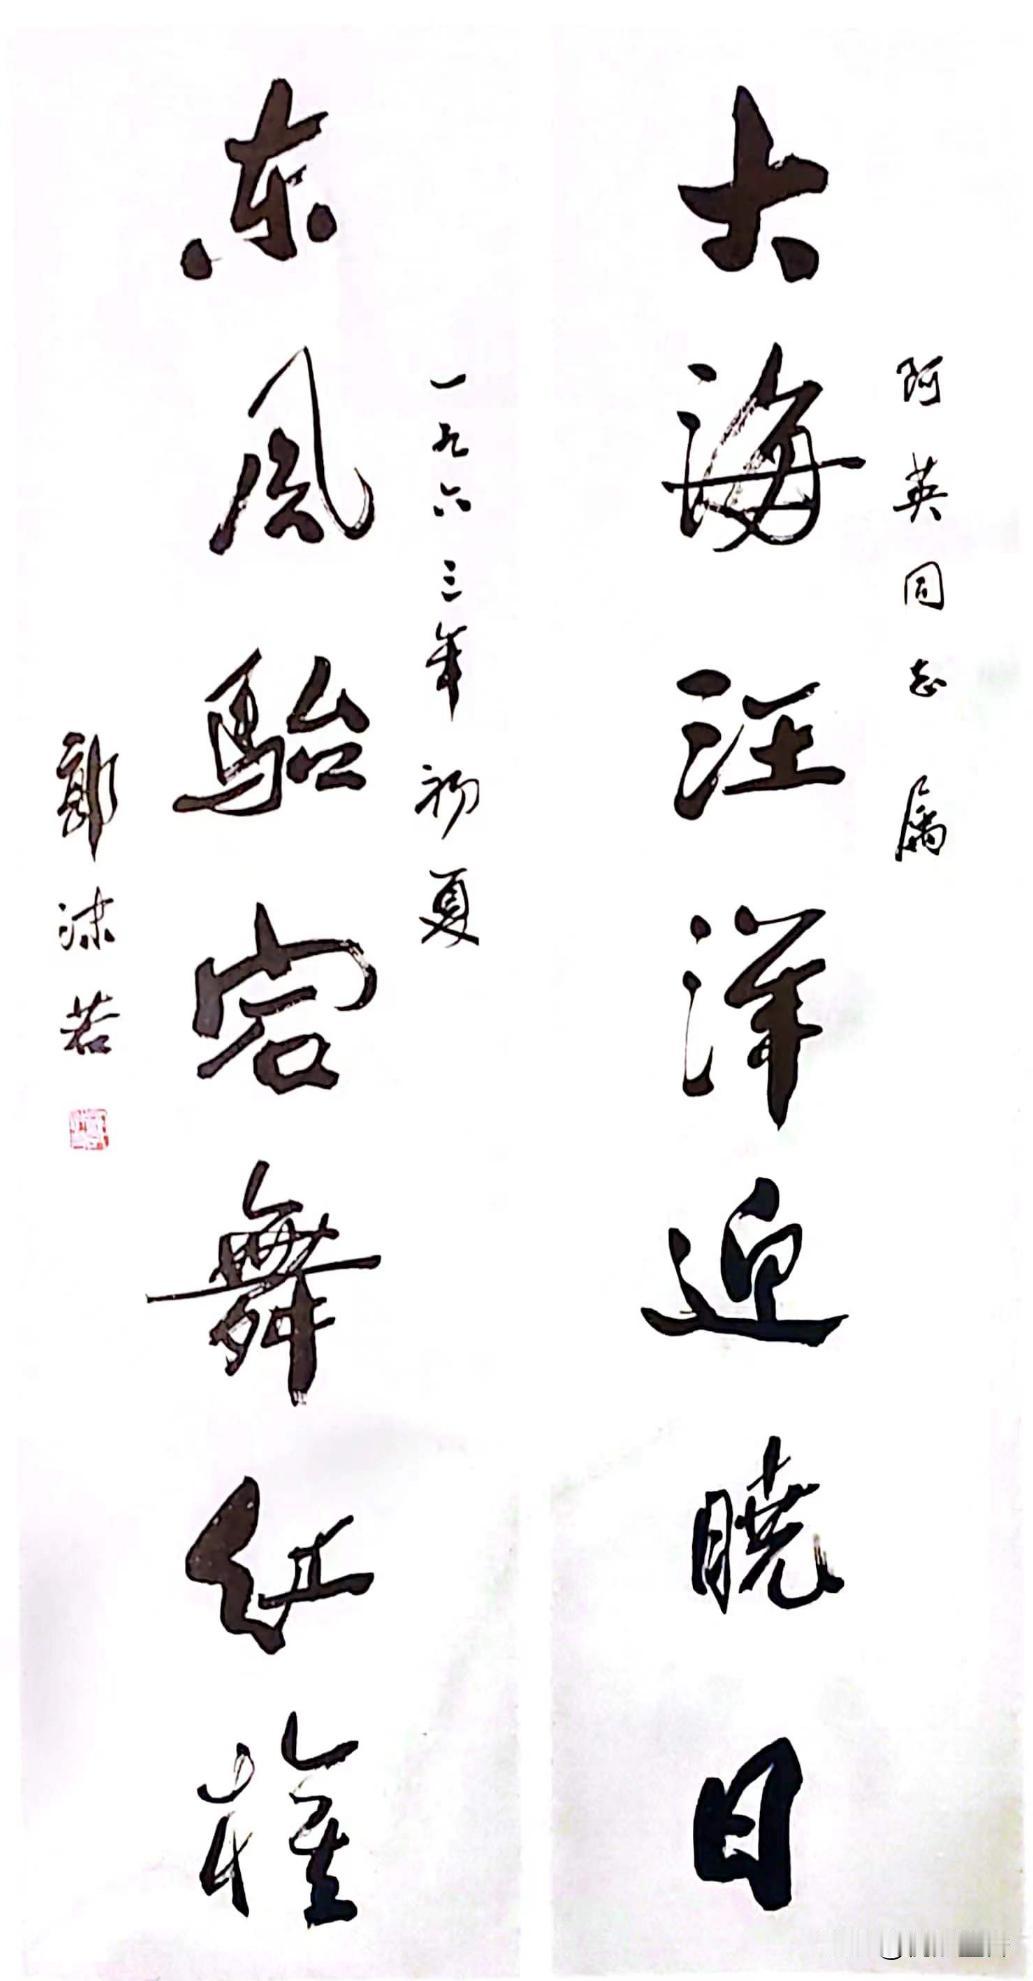 阿英同志属
大海汪洋迎晓日
一九六三年初夏
东风駘宕舞红旗
郭沫若